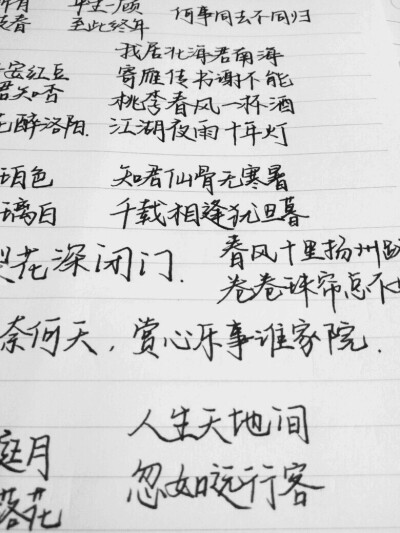 平生一顾 何事同去不同归
至此终年
我居北海君南海
安红豆 寄雁传书谢不能
君知否 桃李春风一杯酒
醉洛阳. 江湖夜雨十年灯
珀色 知君仙骨无寒暑
璃白 千载相逢犹旦暮
花深闭门. 春风十里扬州路
卷卷珠帘总不
奈何天，赏心乐事谁家院.
庭月 人生天地间
落花 忽如远行客